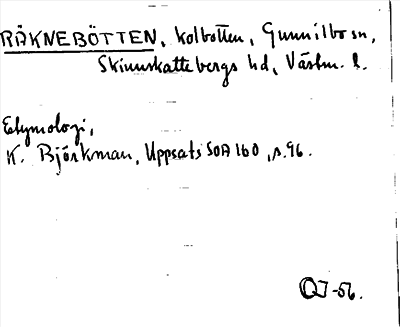 RÄKNEBÖTTEN, kolbotten, Gunnilbo sn,
Skinnskattebergs hd, Västm. l.
Etymologi,
K. Björkman, Uppsats SOA 160, s. 96.
OJ-56.